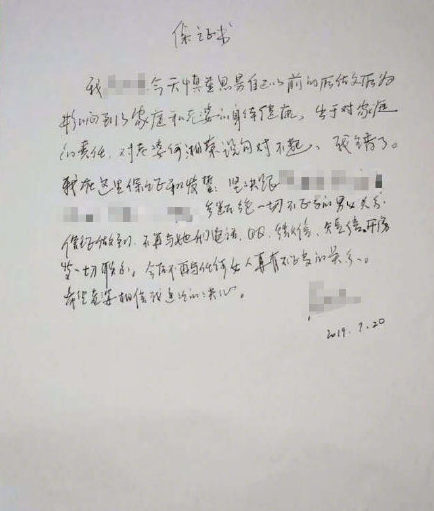 保证书
我 今天慎重思虑自己以前的所作所为
影响到了家庭和老婆的身体健康,出于对家庭
的责任,对老婆何湘 说句对不起,我错了。
我在这里保证和发誓,坚决跟
断绝一切不正当的男女关系
保证做到,不再与她们电话、QQ、微信、短信、开房
等一切联系。今后不再与任何女人再有不正当的关系。
希望老婆相信我这次的决心。
2019.7.20